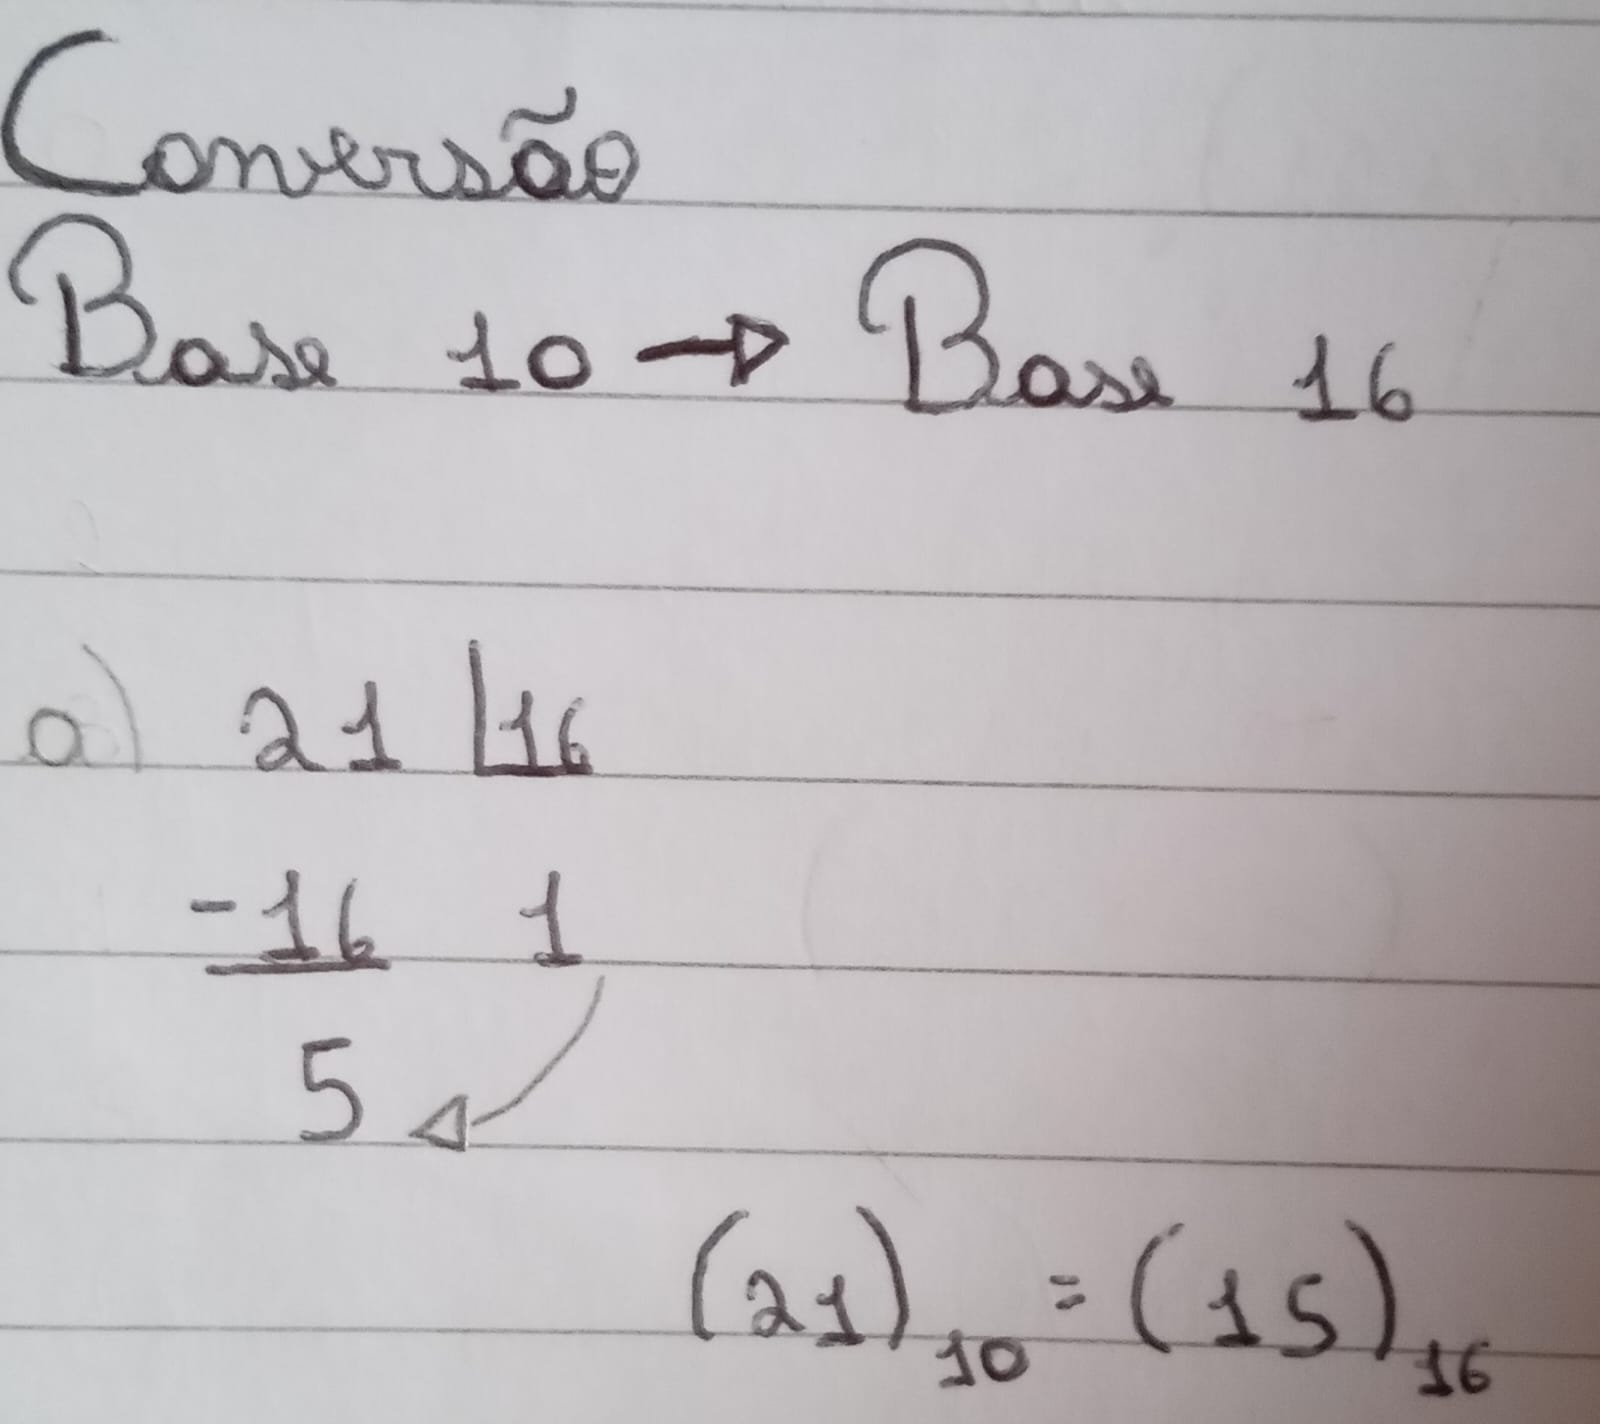 Conversão
Base 10 → Base 16
a) 21 |16
-16 1
5
(21)10 = (15)16